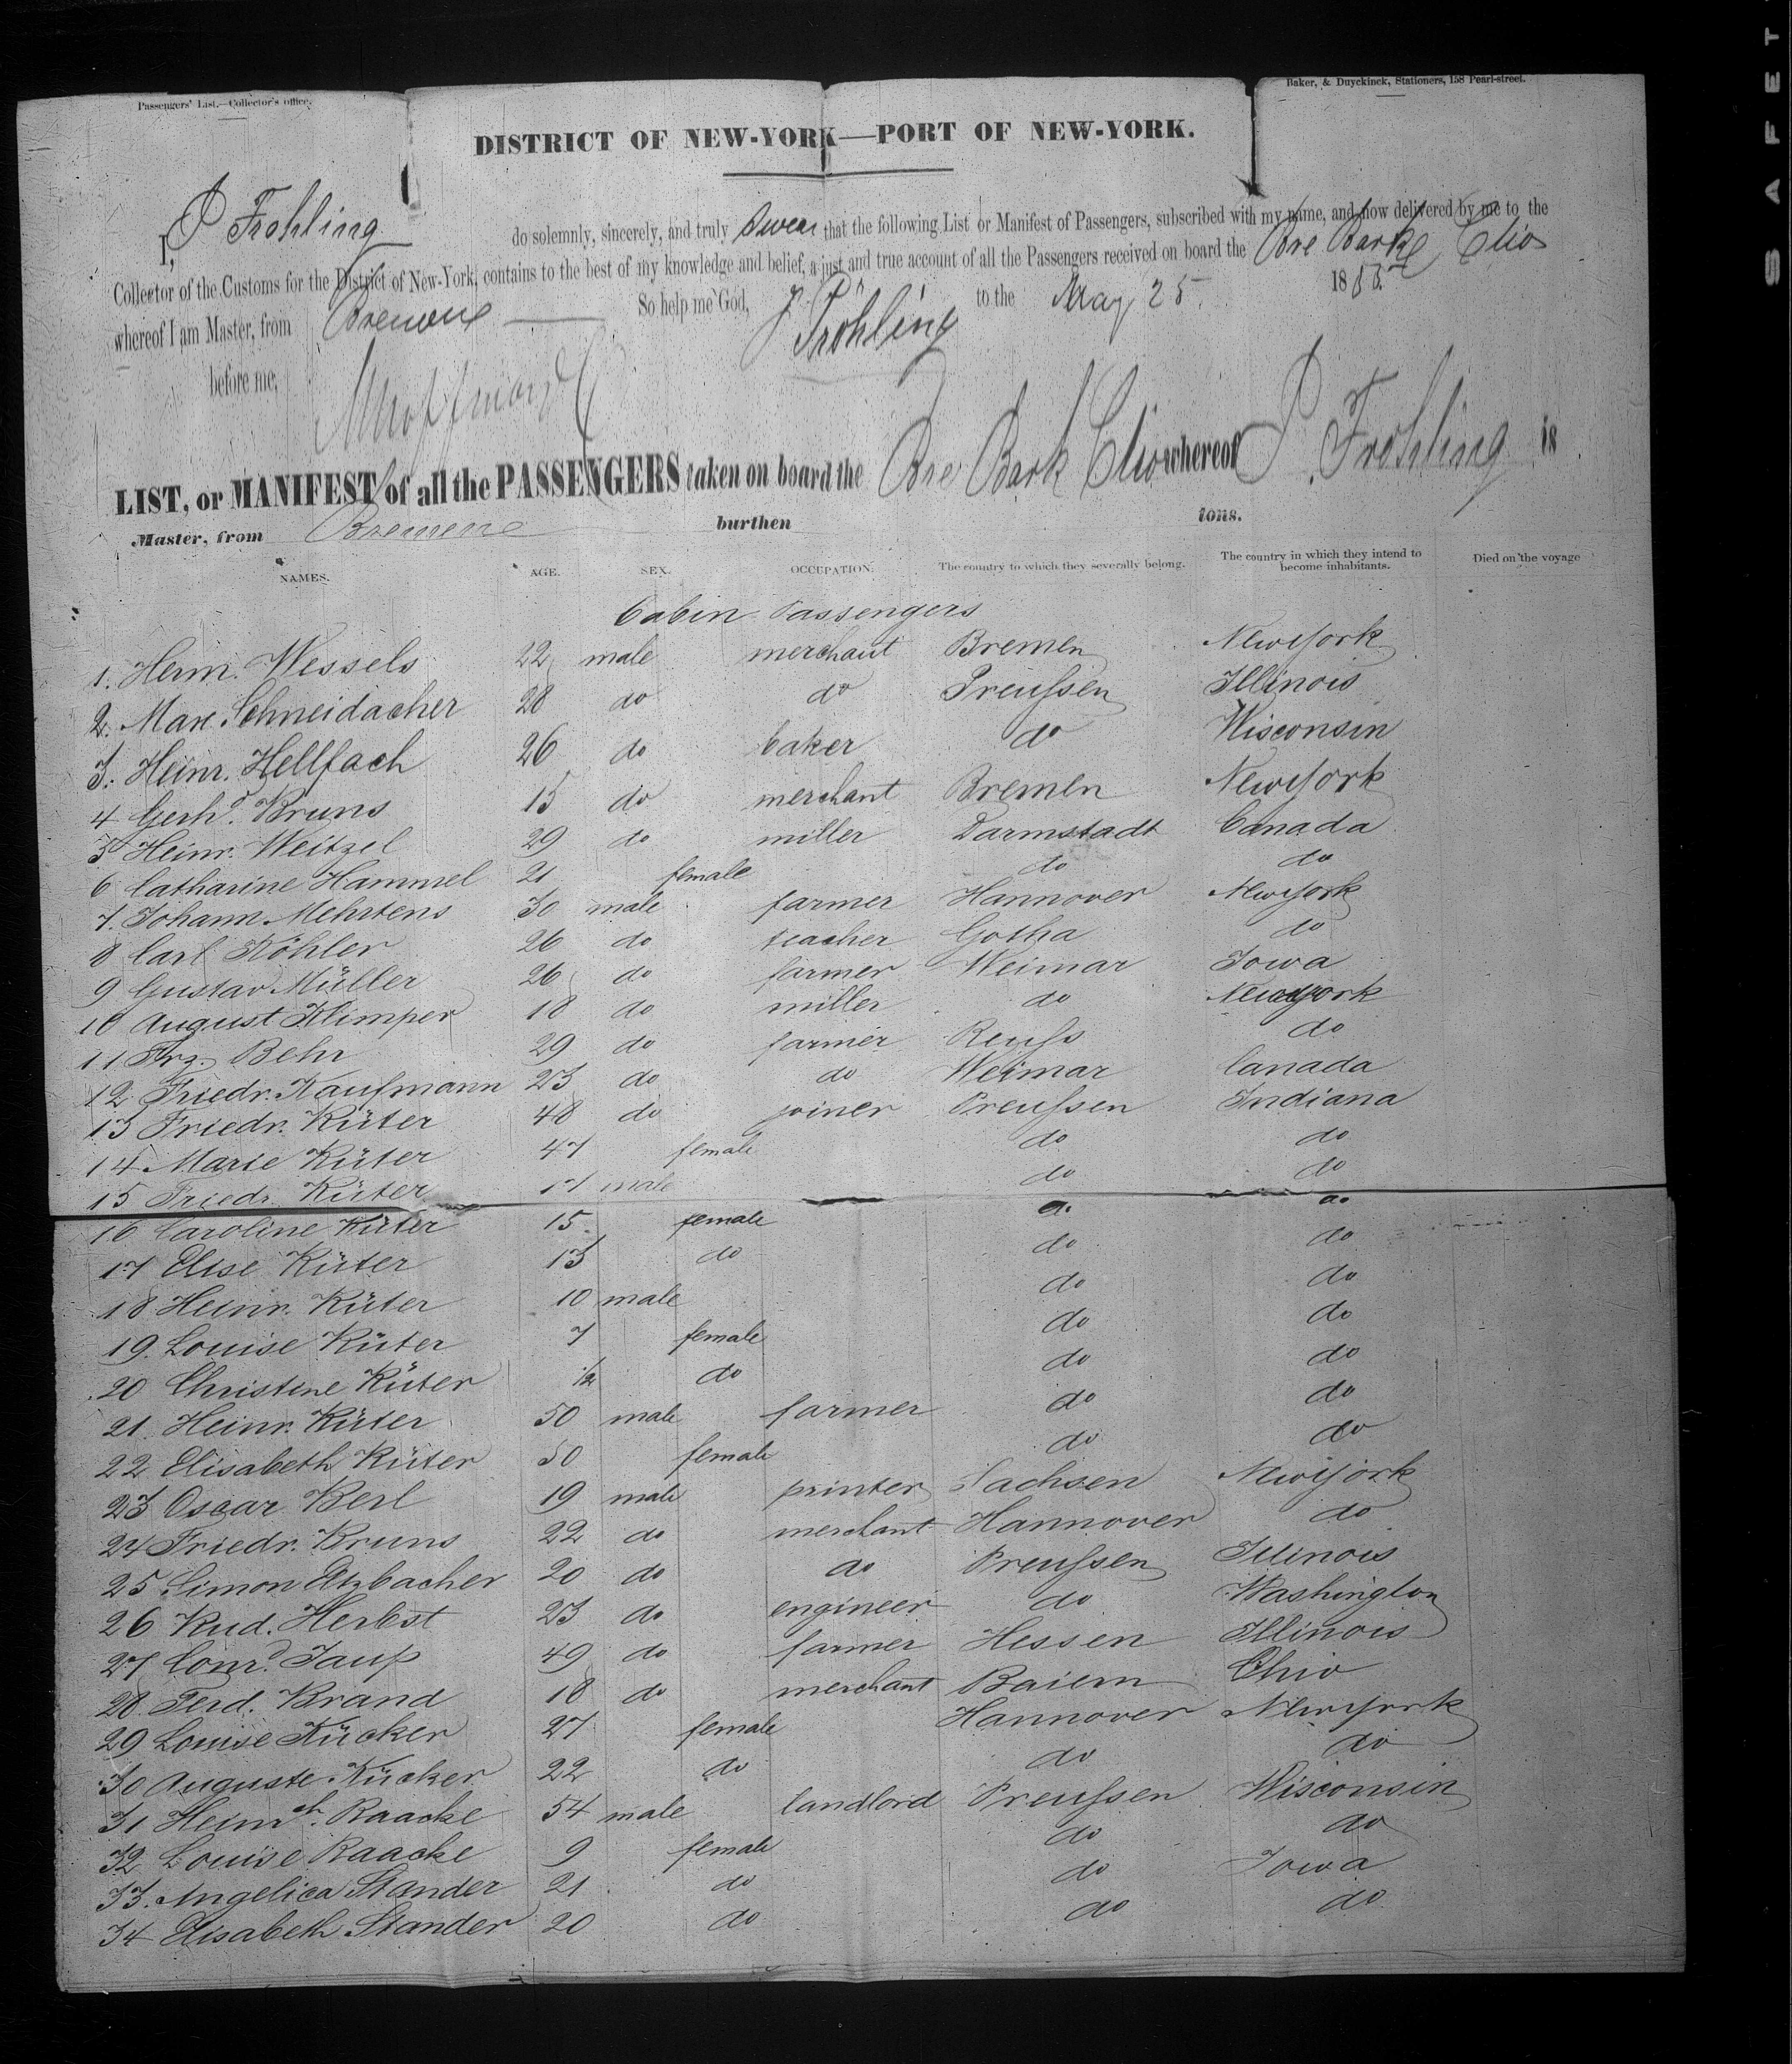 Passengers' List.—Collector's office.
Baker, & Duyckinck, Stationers, 158 Pearl-street.
DISTRICT OF NEW-YORK—PORT OF NEW-YORK.
I, P Frohling do solemnly, sincerely, and truly swear that the following List or Manifest of Passengers, subscribed with my name, and now delivered by me to the
Collector of the Customs for the District of New-York, contains to the best of my knowledge and belief, a just and true account of all the Passengers received on board the Bre Bark Clio
whereof I am Master, from So help me God, P Fröhling to the May 25. 18
before me,
LIST, or MANIFEST of all the PASSENGERS taken on board the Bre Bark Clio whereof P. Fröhling is
Master, from burthen tons.
NAMES. AGE. SEX. OCCUPATION. The country to which they severally belong. The country in which they intend to become inhabitants. Died on the voyage
Cabin Passengers
1. Herm. Wessels 22 male merchant Bremen NewYork
2. Max. Schneidacher 28 do do Preußen Illinois
3. Heinr. Hellfach 26 do baker do Wisconsin
4 Gerhd. Bruns 15 do merchant Bremen NewYork
5 Heinr. Weitzel 29 do miller Darmstadt Canada
6 Catharine Hammel 21 female do do
7. Johann Mehrtens 30 male farmer Hannover NewYork
8 Carl Köhler 26 do teacher Gotha do
9 Gustav Müller 26 do farmer Weimar Iowa
10 August Klimper 18 do miller do NewYork
11 Frz. Behr 29 do farmer Reuß do
12 Friedr. Kaufmann 23 do do Weimar Canada
13 Friedr. Küter 48 do joiner Preußen Indiana
14 Marie Küter 47 female do do
15 Friedr. Küter 17 male do do
16 Caroline Küter 15 female do do
17 Elise Küter 13 do do do
18 Heinr. Küter 10 male do do
19. Louise Küter 7 female do do
20 Christine Küter 1/2 do do do
21. Heinr. Küter 50 male farmer do do
22 Elisabeth Küter 50 female do do
23 Oscar Berl 19 male printer Sachsen NewYork
24 Friedr. Bruns 22 do merchant Hannover do
25 Simon Etzbacher 20 do do Preußen Illinois
26 Rud. Herbst 23 do engineer do Washington
27 Conrd. Jaup 49 do farmer Hessen Illinois
28. Ferd. Brand 18 do merchant Baiern Ohio
29 Louise Kücker 27 female Hannover NewYork
30 Auguste Kücker 22 do do do
31 Heinrch. Raacke 54 male landlord Preußen Wisconsin
32 Louise Raacke 9 female do do
33. Angelica Stander 21 do do Iowa
34 Elisabeth Stander 20 do do do
SAFET